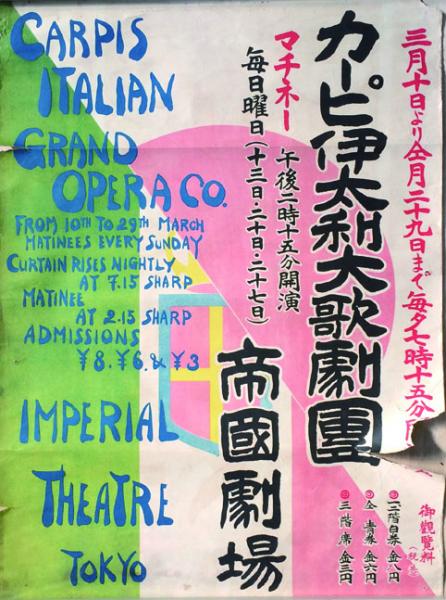 CARPIS
ITALIAN
GRAND
OPERA CO.
FROM 10TH TO 29TH MARCH
MATINEES EVERY SUNDAY
CURTAIN RISES NIGHTLY
AT 7.15 SHARP
MATINEE
AT 2.15 SHARP
ADMISSIONS
¥8. ¥6. & ¥3
IMPERIAL
THEATRE
TOKYO
三月十日より仝月二十九日まで毎夕七時十五分
カーピ伊太利大歌劇團
マチネー
午後二時十五分開演
毎日曜日(十三日・二十日・二十七日)
帝國劇場
御觀覽料
一二階白券 金八円
仝 青券 金六円
三階席 金三円